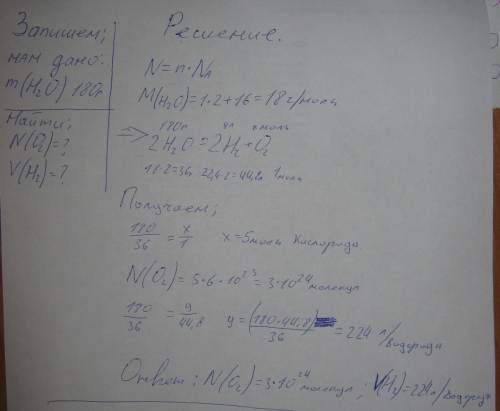 Запишем;
нам дано:
m(H₂O) 180г
Найти;
N(O₂)=?
V(H₂)=?
Решение.
N=n·Nₐ
M(H₂O)=1·2+16=18г/моль
180г yл xмоль
=> 2H₂O=2H₂+O₂
18·2=36г 22,4·2=44,8л 1моль
Получаем;
180/36 = x/1 x=5моль кислорода
N(O₂)=5·6·10²³=3·10²⁴молекул
180/36 = y/44,8 y=(180·44,8)/36=224 л/водорода
Ответ: N(O₂)=3·10²⁴молекул, V(H₂)=224л/водорода